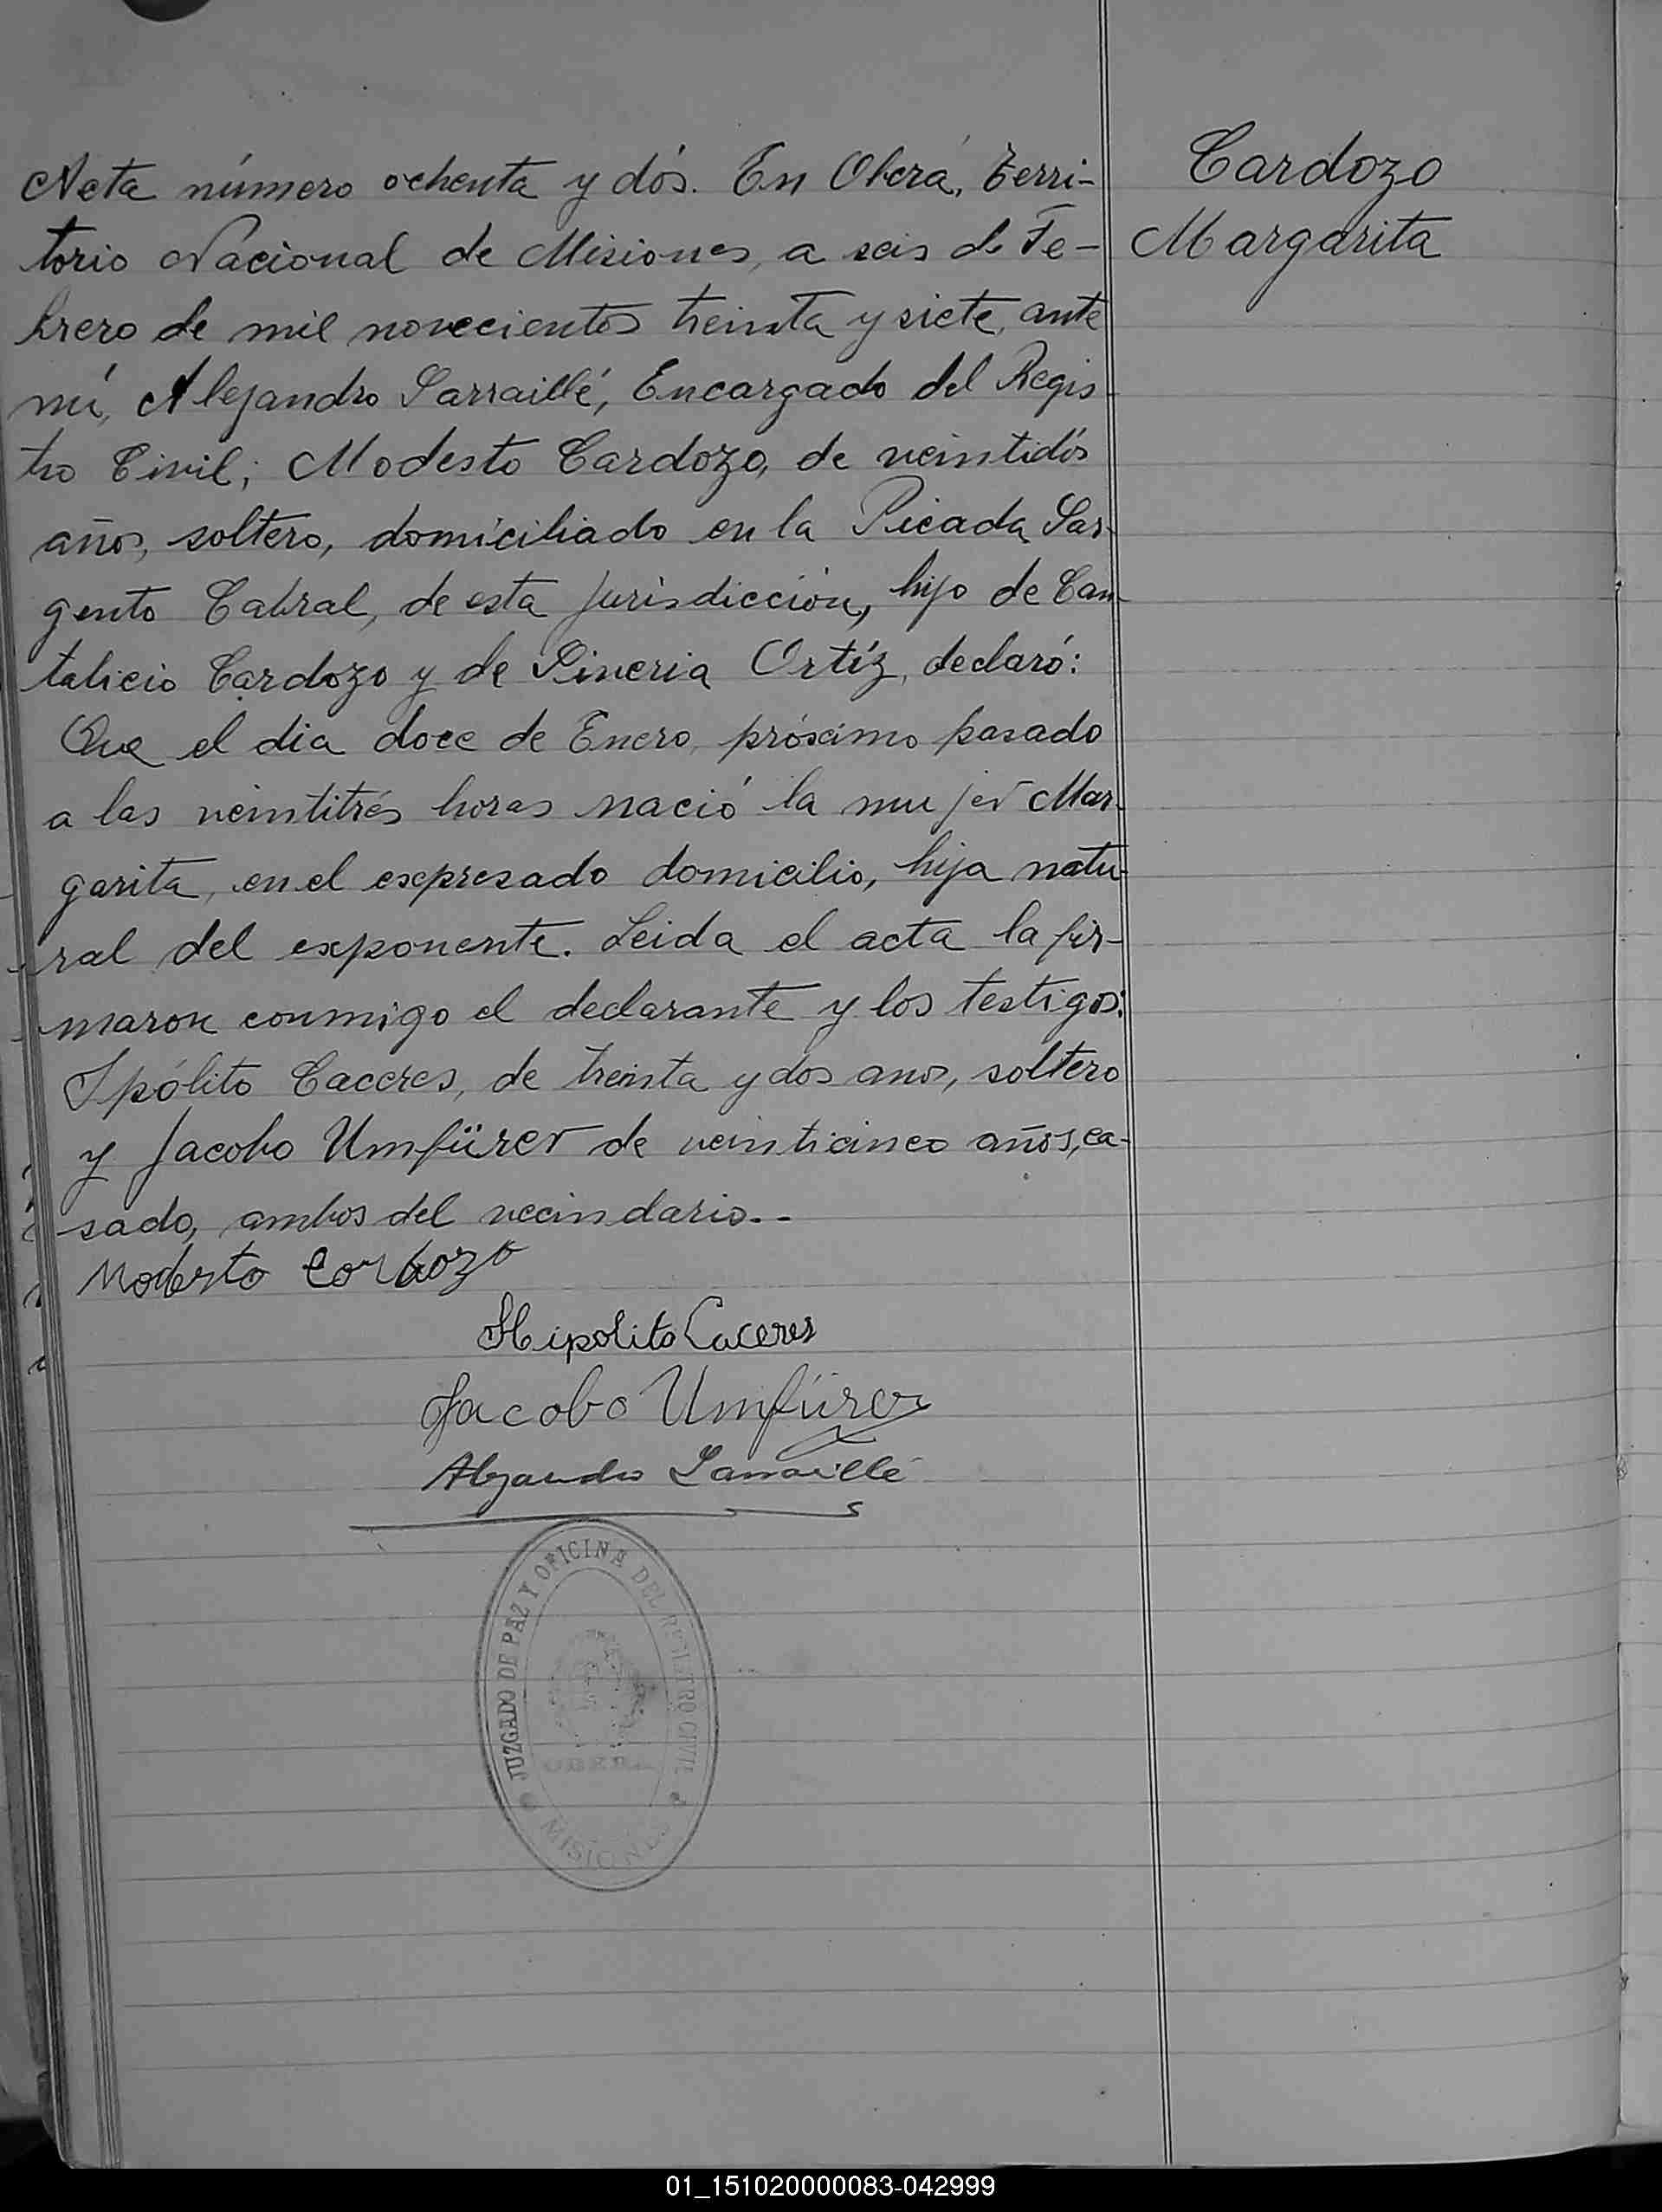 Acta número ochenta y dós. En Oberá, Terri-
torio Nacional de Misiones, a seis de Fe-
brero de mil novecientos treinta y siete, ante
mí, Alejandro Larraillé, Encargado del Regis-
tro Civil; Modesto Cardozo, de veintidós
años, soltero, domiciliado en la Picada Sar-
gento Cabral, de esta jurisdicción, hijo de Can-
talicio Cardozo y de Ortíz, declaró:
Que el dia doce de Enero, próximo pasado
a las veintitrés horas nació la mujer Mar-
garita, en el expresado domicilio, hija natu-
ral del exponente. Leida el acta la fir-
maron conmigo el declarante y los testigos:
Ipólito Caceres, de treinta y dos anos, soltero
y Jacobo Umfürer de veinticinco años, ca-
sado, ambos del vecindario.--
Modesto Cordozo
Hipolito Caceres
Jacobo Umfürer
Alejandro Larraillé
Cardozo
Margarita
JUZGADO DE PAZ Y OFICINA DEL REGISTRO CIVIL
OBERA
MISIONES
01_151020000083-042999